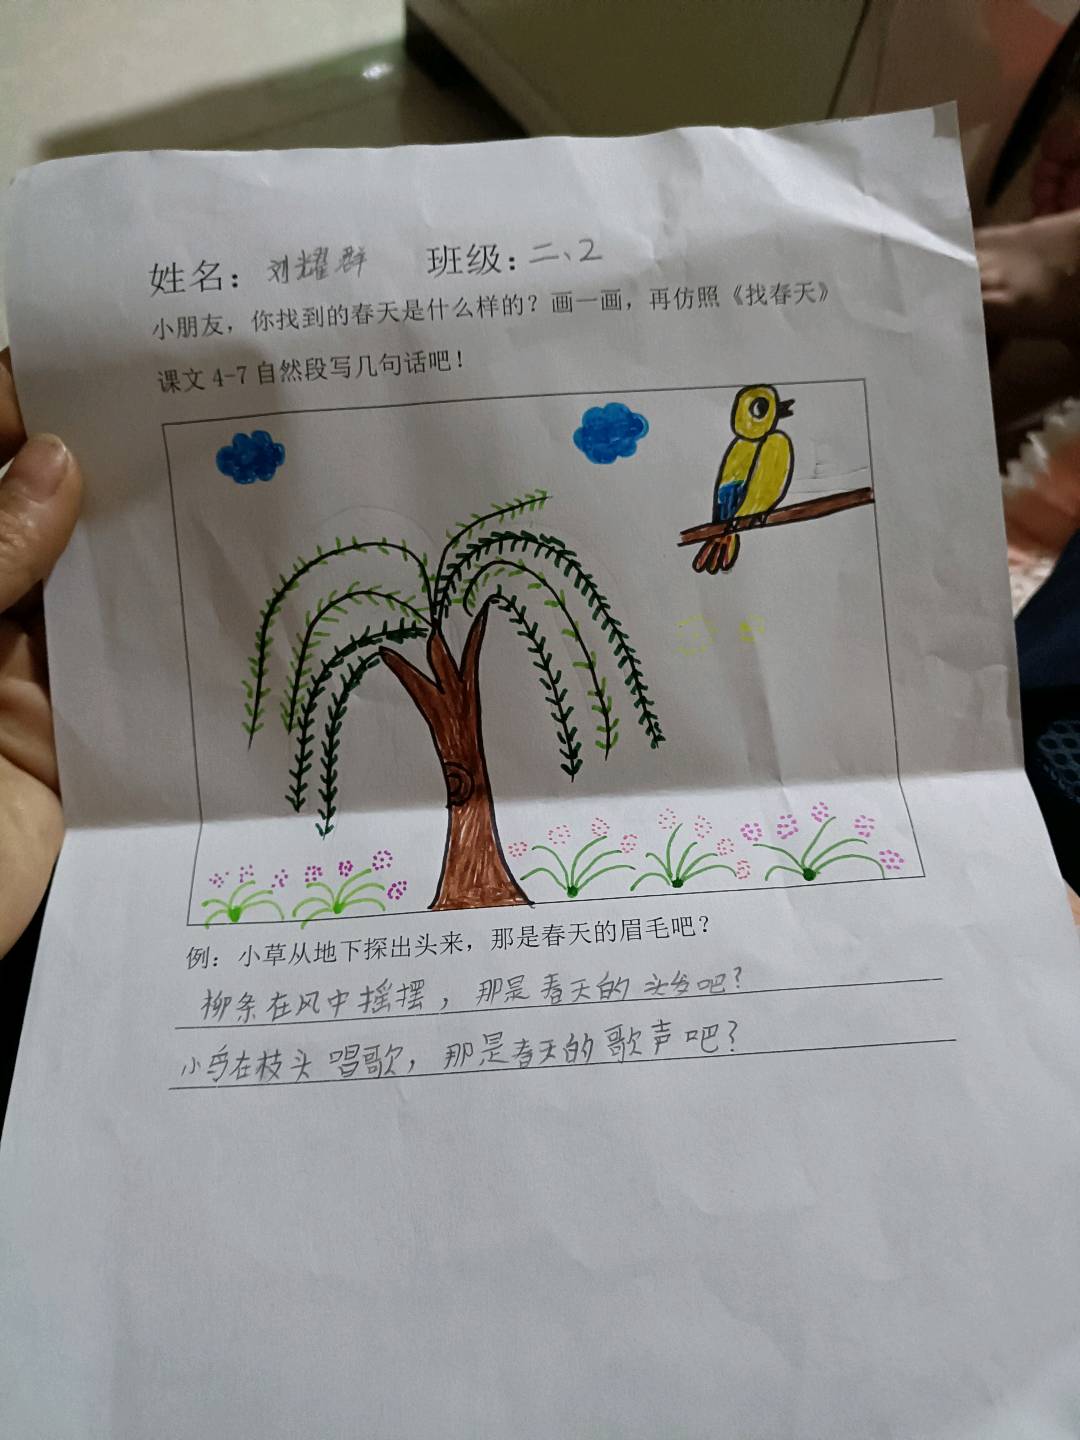 姓名：刘耀群 班级：二、2
小朋友，你找到的春天是什么样的？画一画，再仿照《找春天》
课文 4-7 自然段写几句话吧！
例：小草从地下探出头来，那是春天的眉毛吧？
柳条在风中摇摆，那是春天的头发吧？
小鸟在枝头唱歌，那是春天的歌声吧？